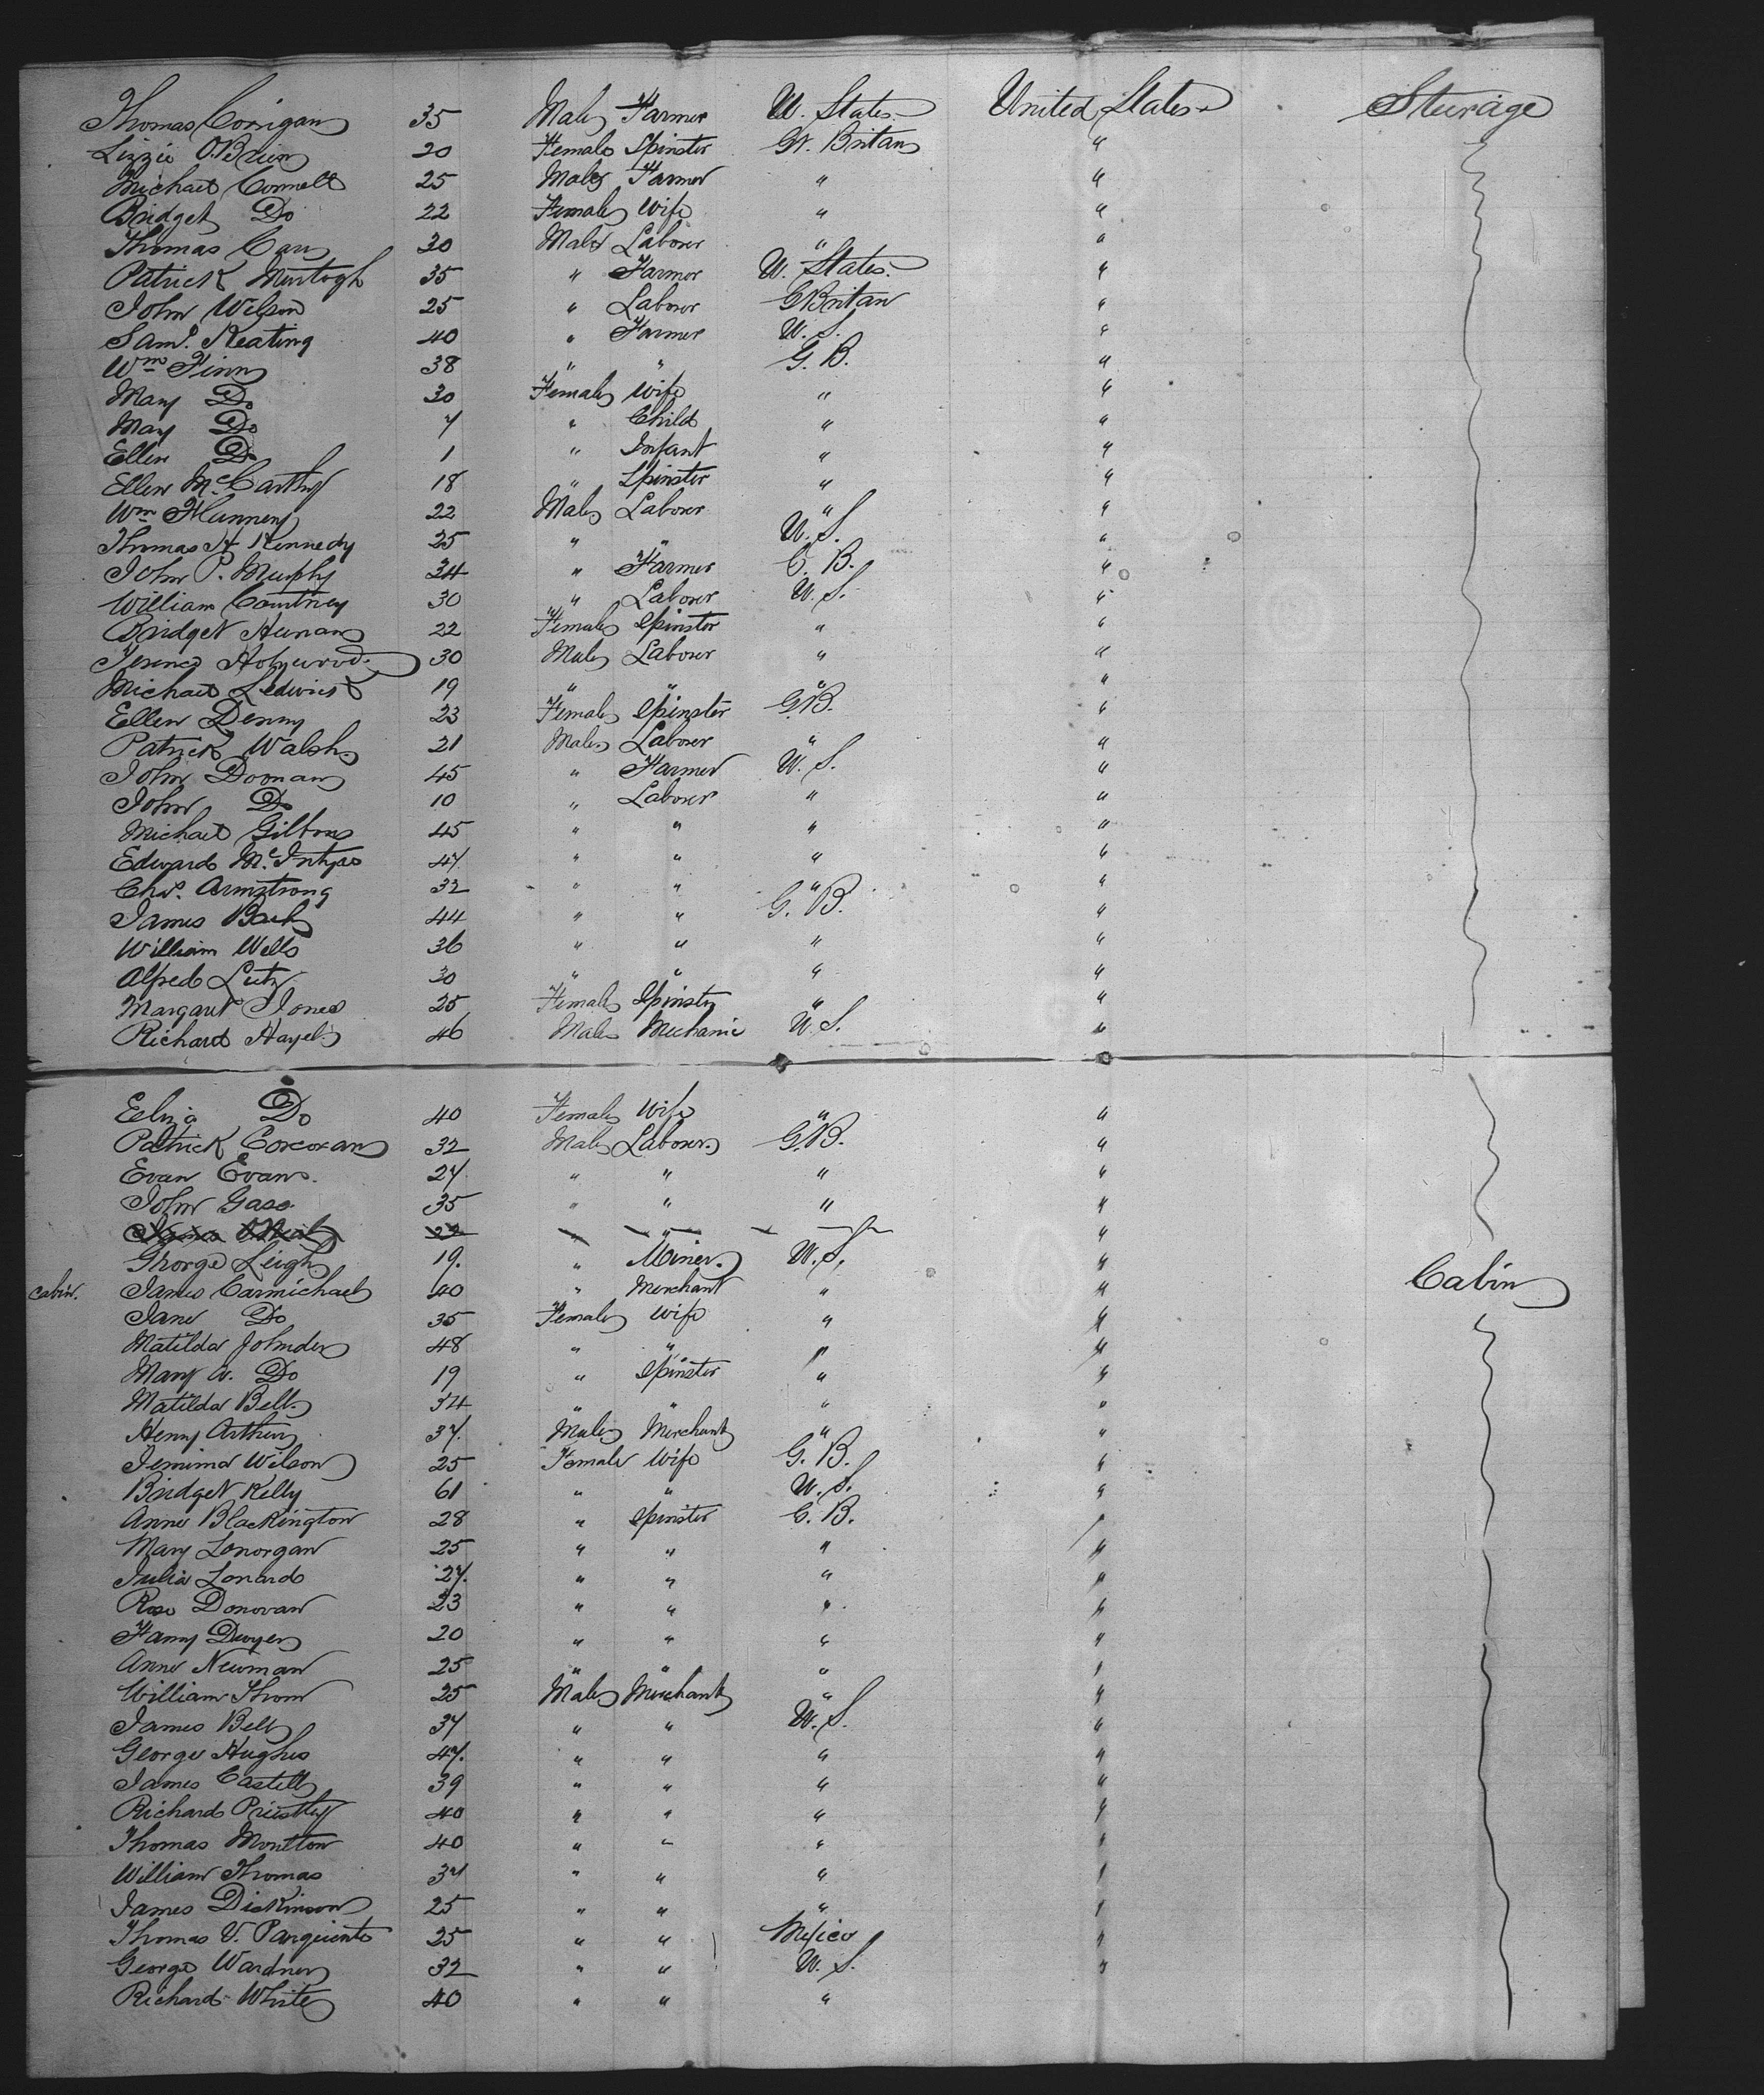 Thomas Corrigan 35 Male Farmer U. States United States Sturage
Lizzie O.Brien 20 Female Spinster Gt. Britan "
Michael Connell 25 Male Farmer " "
Bridget Do 22 Female Wife " "
Thomas Carr 30 Male Laborer " "
Patrick Murtogh 35 " Farmer U. States. "
John Wilson 25 " Laborer G Britan "
Saml. Keating 40 " Farmer U. S. "
Wm Finn 38 " " G. B. "
Mary Do 30 Female Wife " "
May Do 7 " Child " "
Ellen Do 1 " Infant " "
Ellen McCarthy 18 " Spinster " "
Wm Flannery 22 Male Laborer " "
Thomas H Kennedy 25 " " U. S. "
John P. Murphy 34 " Farmer G. B. "
William Courtney 30 " Laborer U. S. "
Bridget Heenan 22 Female Spinster " "
Terence Holywood 30 Male Laborer " "
Michael 19 " " " "
Ellen Denny 23 Female Spinster G.B. "
Patrick Walsh 21 Male Laborer " "
John Doonan 45 " Farmer U. S. "
John Do 10 " Laborer " "
Michael Gilbons 45 " " " "
Edward McIntyre 47 " " " "
Chas. Armstrong 32 " " " "
James 44 " " G. B. "
William Wells 36 " " " "
Alfred Lutz 30 " " " "
Margaret Jones 25 Female Spinster " "
Richard Hayels 46 Male Mechanic U. S. "
Eliza Do 40 Female Wife " "
Patrick Corcoran 32 Male Laborer G.B. "
Evan Evans. 27 " " " "
John Gass 35 " " " "
22 " " "
George Leigh 19. " Miner. U. S. "
Cabin. James Carmichael 40 " Merchant " " Cabin
Jane Do 35 Female Wife " "
Matilda 48 " " " "
Mary A. Do 19 " Spinster " "
Matilda Bell 34 " " " "
Henry Arthur 37. Male Merchant " "
Jemima Wilson 25 Female Wife G. B. "
Bridget Kelly 61 " " U. S. "
Anne Blackington 28 " Spinster G. B.
Mary Lonorgan 25 " " " "
Julia Lonard 27. " " " "
Rose Donovan 23 " " " "
Fanny Dwyer 20 " " " "
Anne Newman 25 " " " "
William Thom 25 Male Merchant " "
James Bell 37 " " U. S. "
George Hughes 47. " " " "
James Castell 39 " " " "
Richard Priestley 40 " " " "
Thomas Moulton 40 " " " "
William Thomas 37 " " " "
James Dickinson 25 " " " "
Thomas V. 25 " " Mexico "
George Wardner 32 " " U. S. "
Richard White 40 " " "